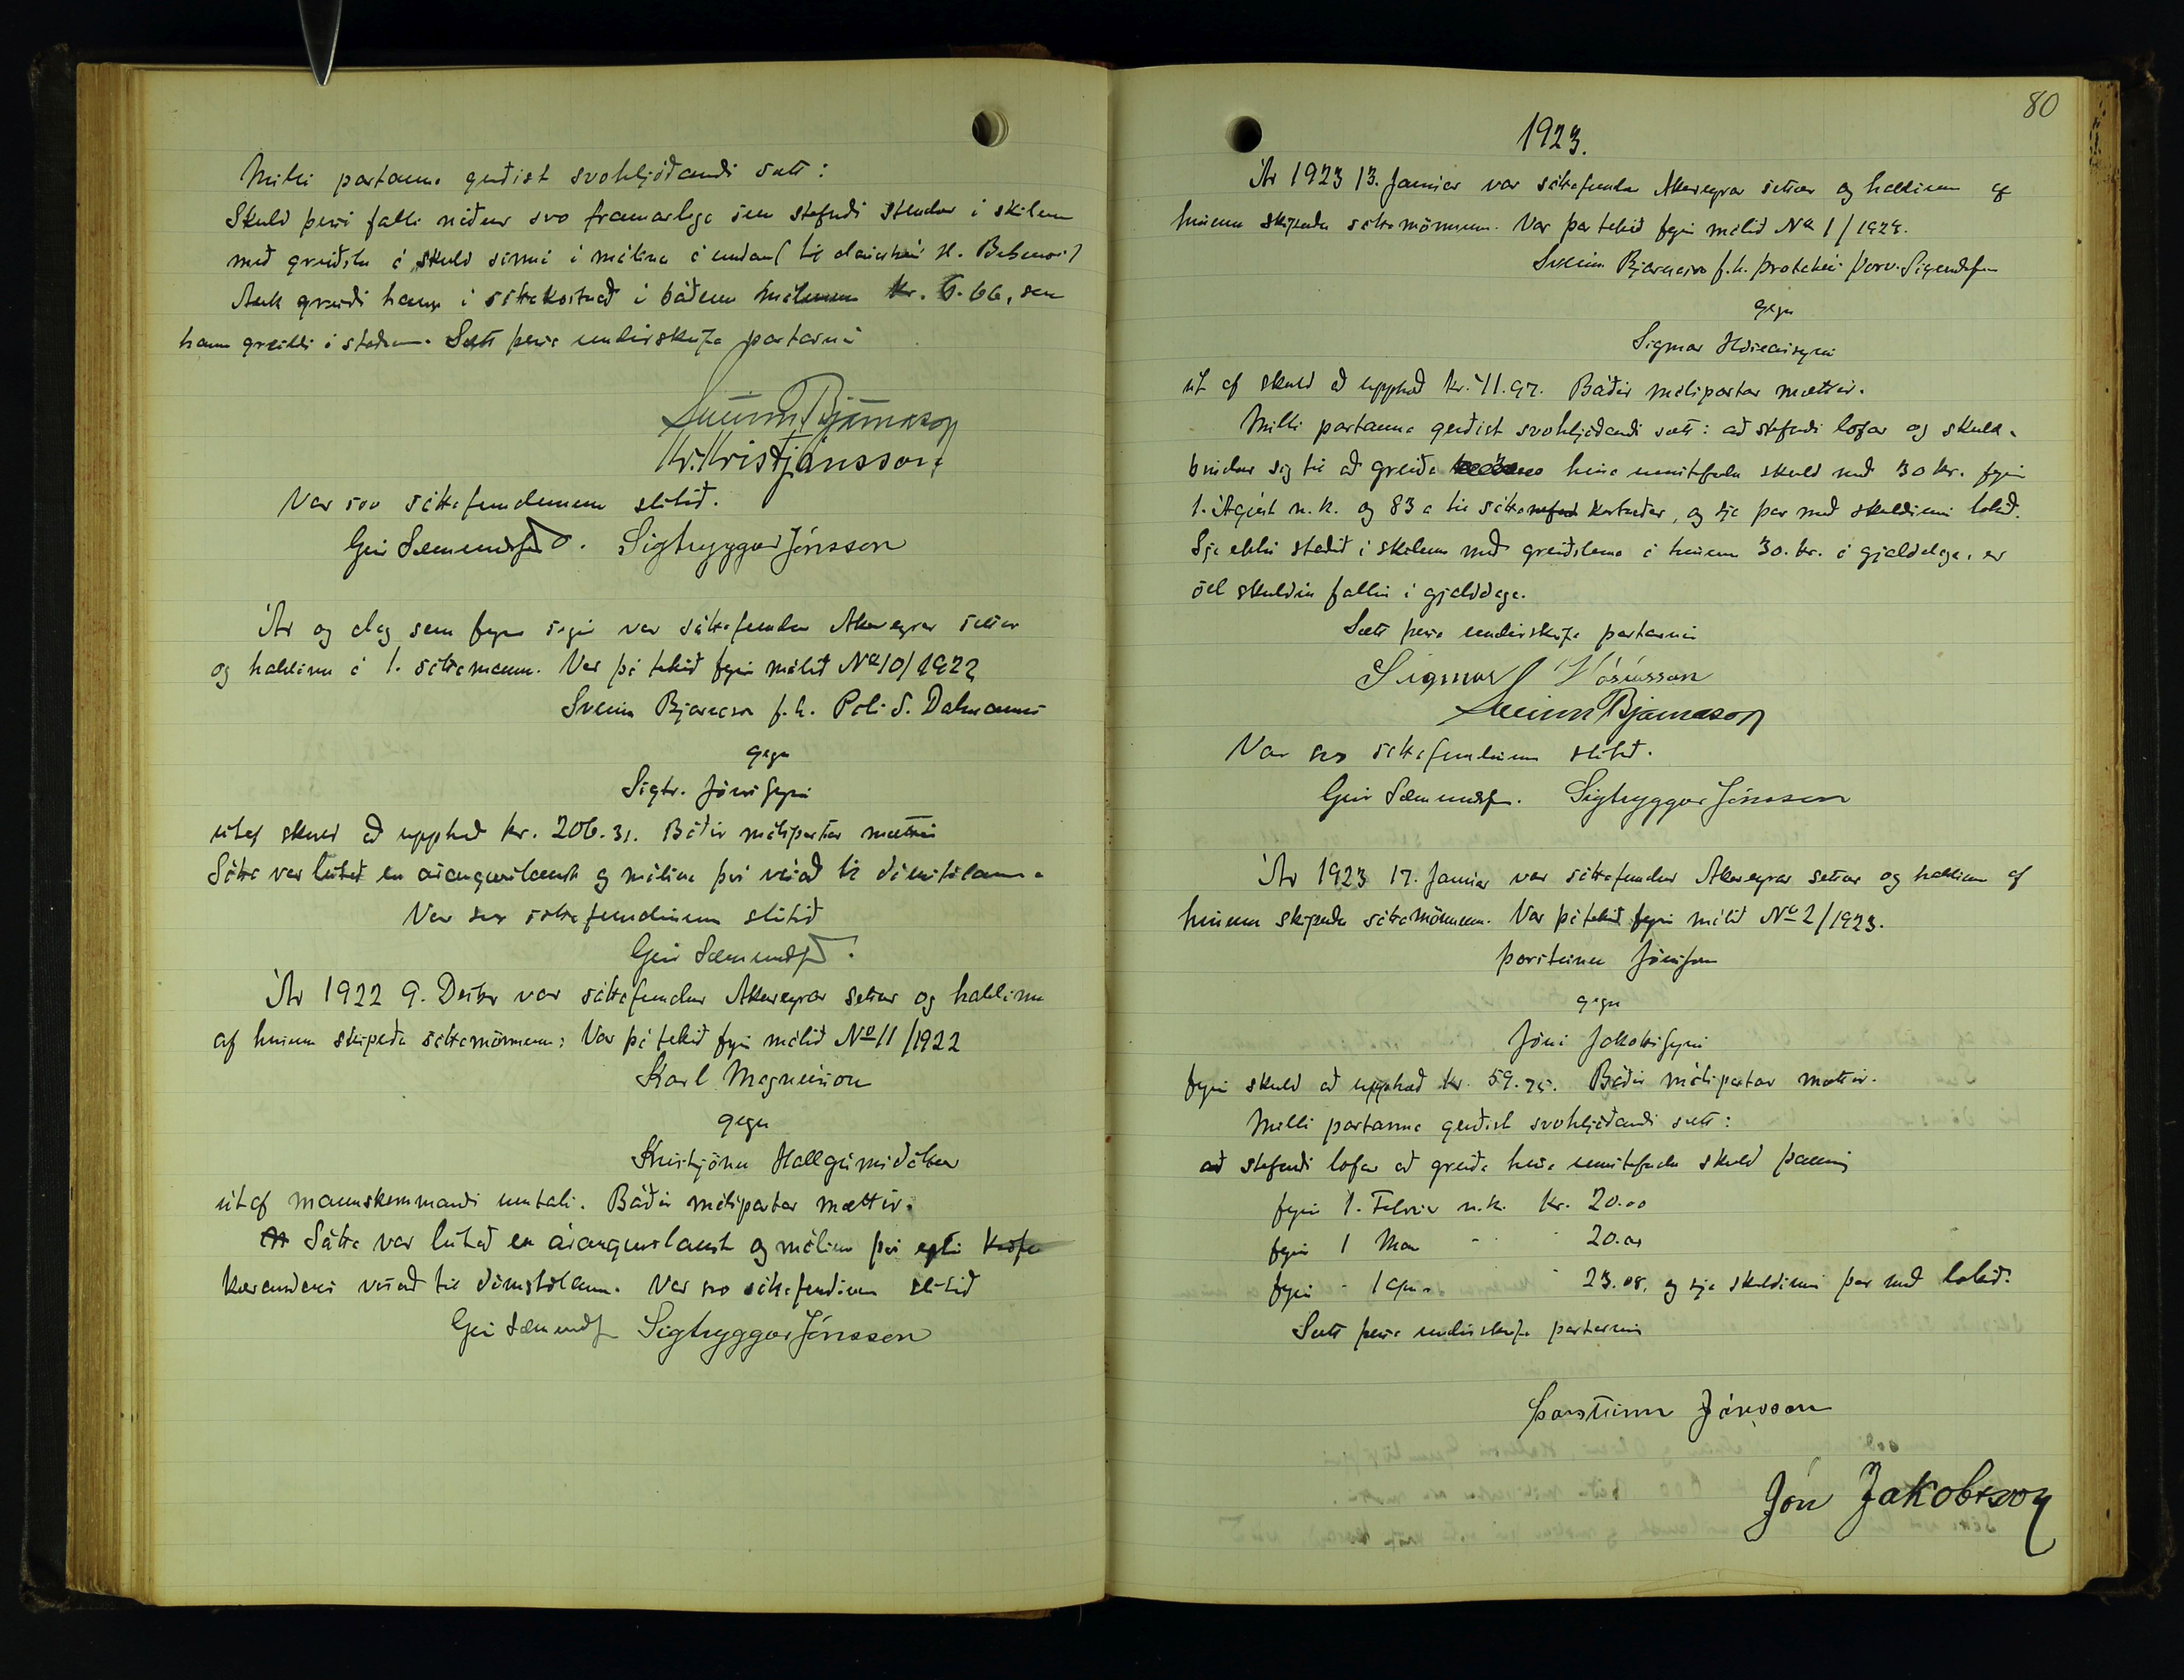 Milli partanna gerðist svohljóðandi sátt:
Skuld þessi falli niður svo framarlega sem stefndi stendur í skilum
með greiðslu á skuld sinni í málinu á undan (til dánarbús H.
Auk greiði hann í sáttakostnað í báðum málunum kr. 6.66, sem
hann greiddi í staðinn. Sátt þessa undirskrifa partarnir
Sveinn Bjarnason
Kr. Kristjánsson.
Var svo sáttafundinum slitið.
Geir Sæmundss. Sigtryggur Jónsson
Ár og dag sem fyr segir var sáttafundur Akureyrar settur
og haldinn á 1. sáttamanni. Var þá tekið fyrir málið No 10/1922
Sveinn Bjarnason f.h.
gegn
Sigtr. Jónssyni
útaf skuld að upphæð kr. 206.31. Báðir málspartar mættir
Sátta var leitað en árangurslaust og málinu því vísað til dómstólanna
Var svo sáttafundinum slitið
Geir Sæmundss.
Ár 1922 9. Desbr var sáttafundur Akureyrar settur og haldinn
af hinum skipuðu sáttamönnum: Var þá tekið fyrir málið No 11/1922
Karl Magnússon
gegn
Kristjönu Hallgrímsdóttur
útaf mannskemmandi umtali. Báðir málspartar mættir.
Sátta var leitað en árangurslaust og málinu því eptir kröfu
kærandans vísað til dómstólanna. Var svo sáttafundinum slitið
Geir Sæmundss Sigtryggur Jónsson
80
1923.
Ár 1923 13. Janúar var sáttafundur Akureyrar settur og haldinn af
hinum skipuðu sáttamönnum. Var þar tekið fyrir málið No 1/1923.
Sveinn Bjarnason f.h. Þorv. Sigurðss
gegn
Sigmar
út af skuld að upphæð kr. 41.97. Báðir málspartar mættir.
Milli partanna gerðist svohljóðandi sátt: að stefndi lofar og skuld-
bindur sig til að greiða hina umstefndu skuld með 30 kr. fyrir
1. Ágúst n.k. og 83 a til sátta kostnaðar, og sje þar með skuldinni lokið.
Sje ekki staðið í skilum með greiðsluna á hinum 30. kr. á gjalddaga, er
öll skuldin fallin í gjalddaga.
Sátt þessa undirskrifa partarnir
Sigmar
Sveinn Bjarnason
Var svo sáttafundinum slitið.
Geir Sæmundss. Sigtryggur Jónsson
Ár 1923 17. Janúar var sáttafundur Akureyrar settur og haldinn af
hinum skipuðu sáttamönnum. Var þá tekið fyrir málið No 2/1923.
Þorsteinn Jónsson
gegn
Jóni Jakobssyni
fyrir skuld að upphæð kr. 59.75. Báðir málspartar mættir.
Milli partanna gerðist svohljóðandi sátt:
að stefndi lofar að greiða hina umstefndu skuld þannig
fyrir 1. Febrúar n.k. kr. 20.00
fyrir 1 Mar - - 20.00
fyrir - 1 apr. - 23.08, og sje skuldinni þar með lokið.
Sátt þessa undirskrifa partarnir
Þorsteinn Jónsson
Jón Jakobsson